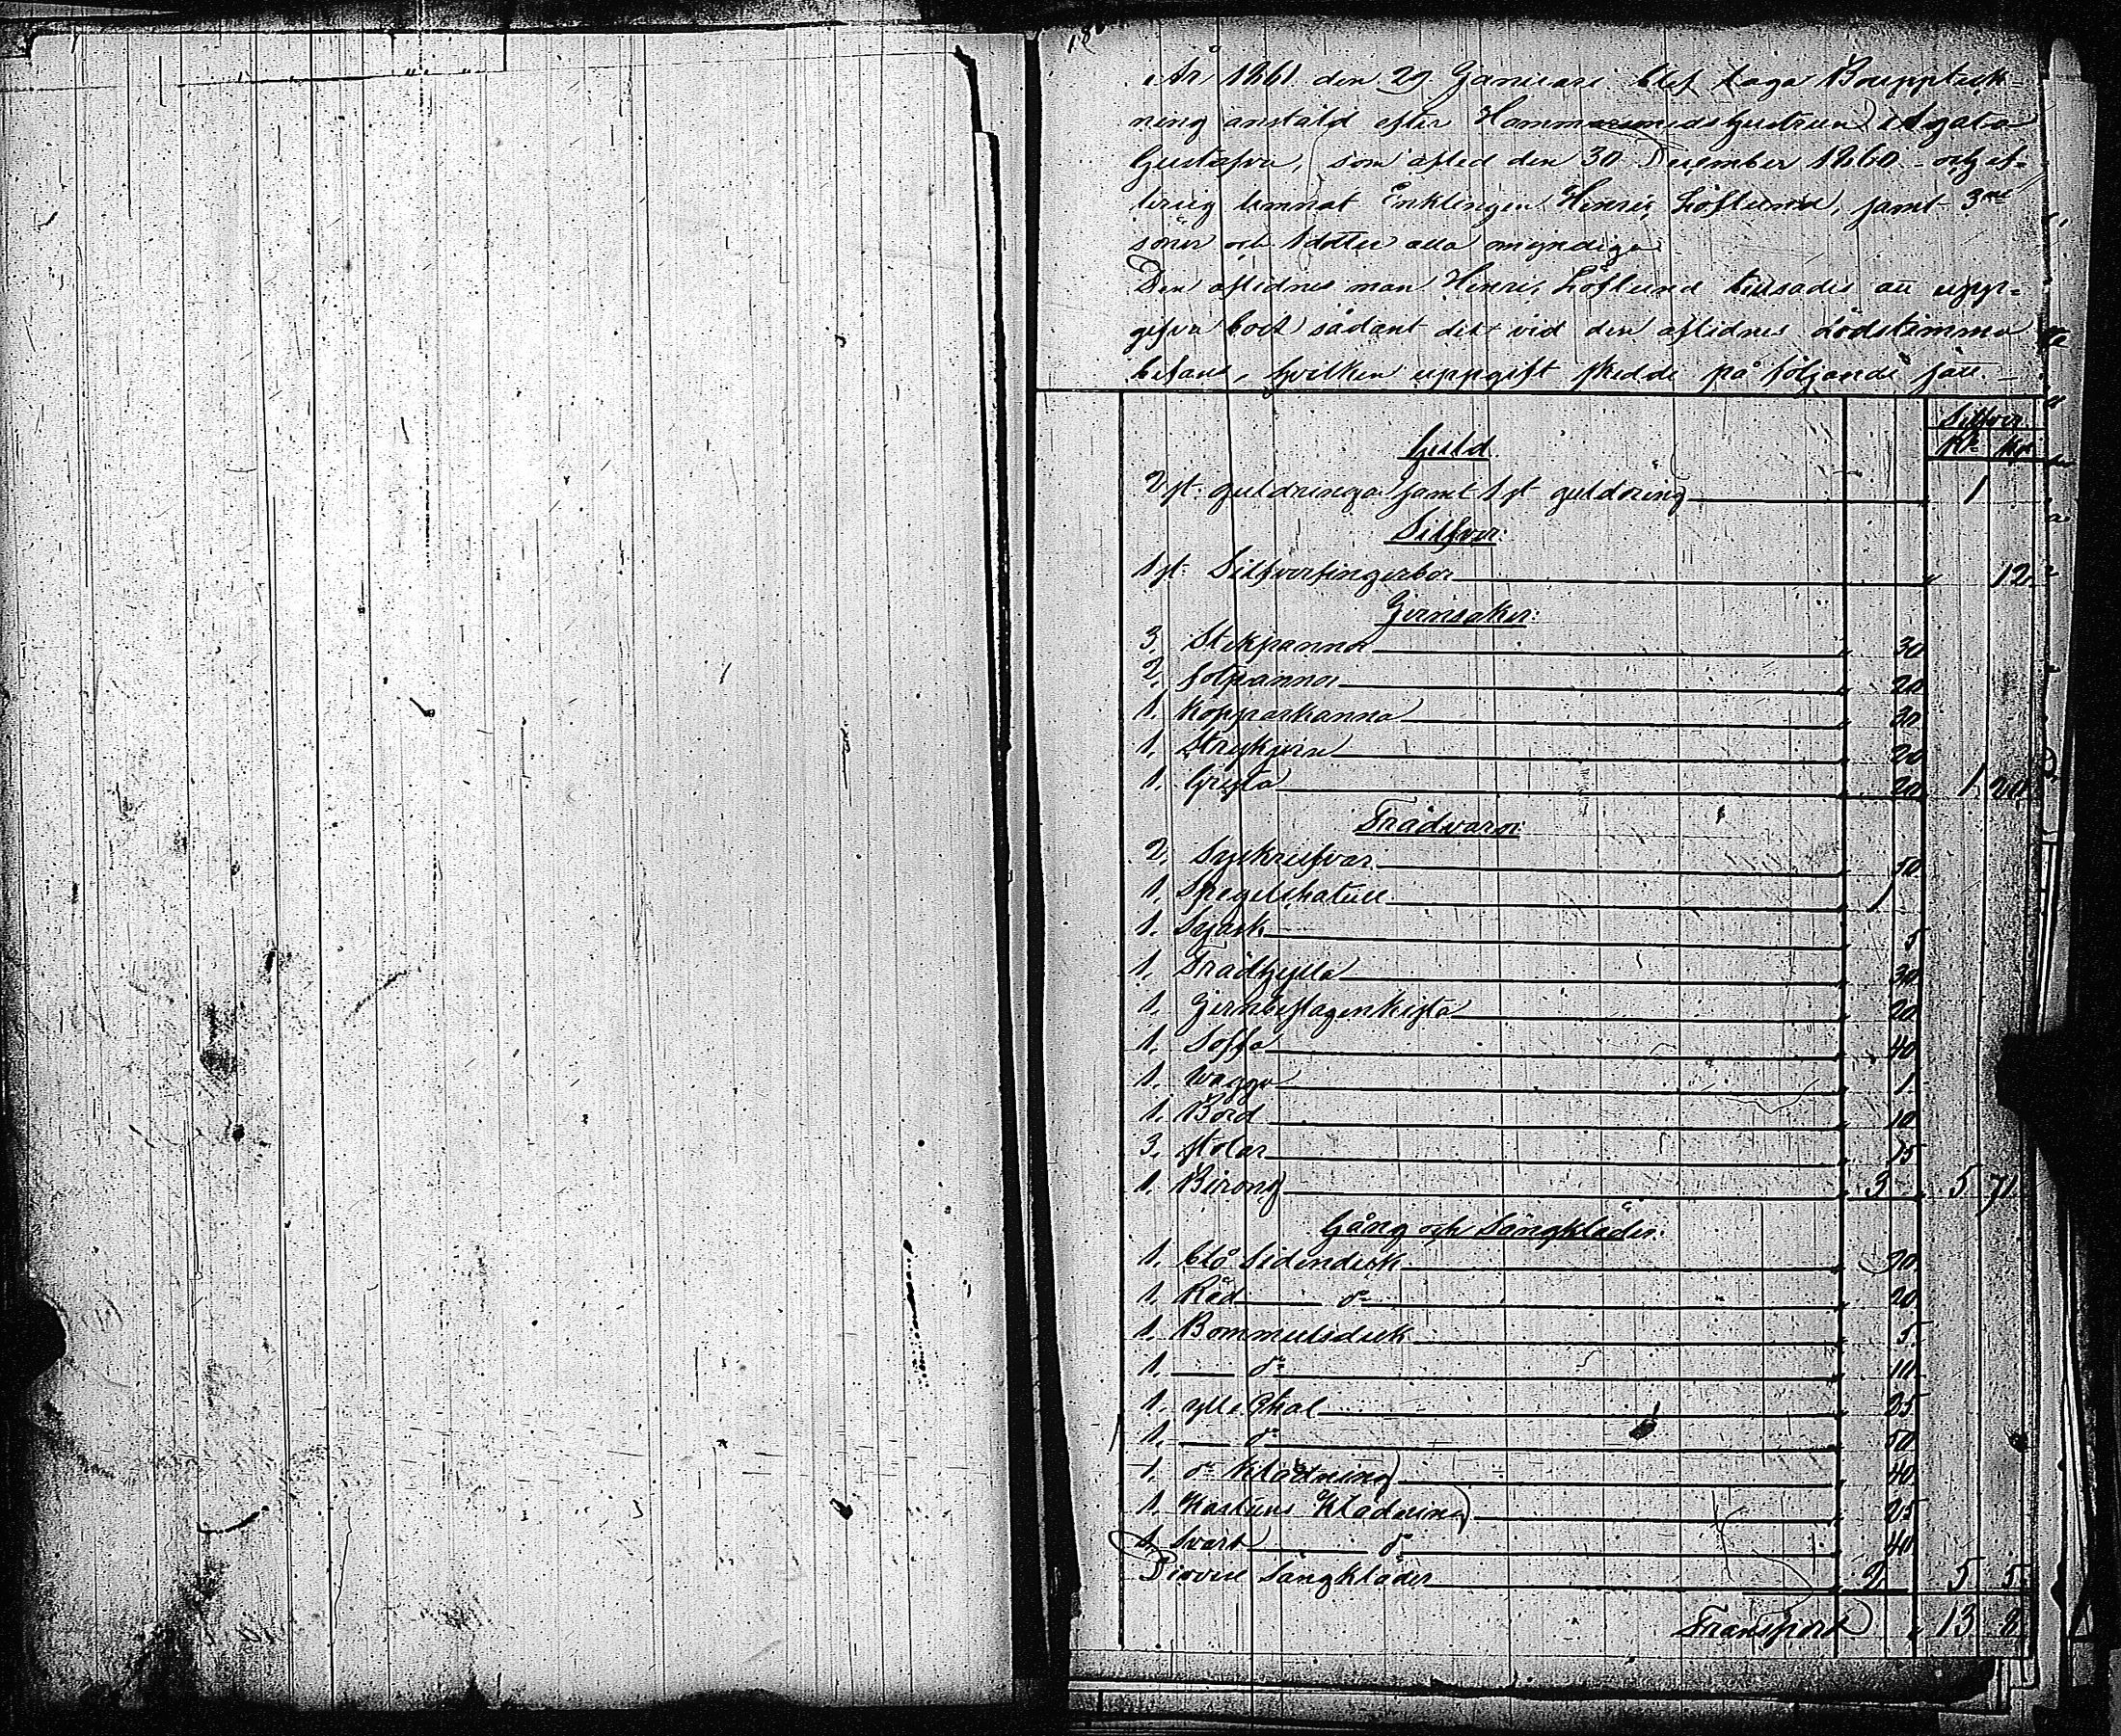 År 1861 den 29 Januari blef laga Bouppteck=
ning anstäld efter Hammarsmedshustrun Agata
Gustafva, som afled den 30 December 1860 och ef=
tersig lemnat Enklingen Henric Löflund, samt 3ne
söner och 1 dotter alla omyndiga
Den aflidnes man Henric Löflund tillsades att upp=
gifva boet sådant det vid den aflidnes dödstimma
befans, hvilken uppgift skedde på följande sätt.
Silfver
Rb. Kop.
Guld
2 st. guldringar samt 1 st guldöring 1
Silfver:
1 st. Silfverfingerbor " 12.
Jernsaker:
3. Stekpannor " 30
2. fotpannor " 20
1. Kopparkanna " 30
1. Strykjern " 20
1. Gryta " 20 1 20
Trädvaror:
2. Syskrufvar " 50
1. Spegelskatull " 1
1. Syask " 5
1. Trädhylla " 30
1. Jernbeslagen kista " 20
1. Soffa " 40
1. Vagga " 1
1. Bord " 10
3. stolar " 15
1 Birong " 3 " 5 71
Gång och Sängkläder:
1. blå Sidenduk " 90
1. Röd do " 20
1. Bommulsduk " 5
1. do " 10
1. ylle Shal " 25
1. do " 50
1. do Klädning " 40
1. Kattuns Klädning " 25
1 Svart do " 40
Diverse Sängkläder " 2 5 5
Transport " 13 8